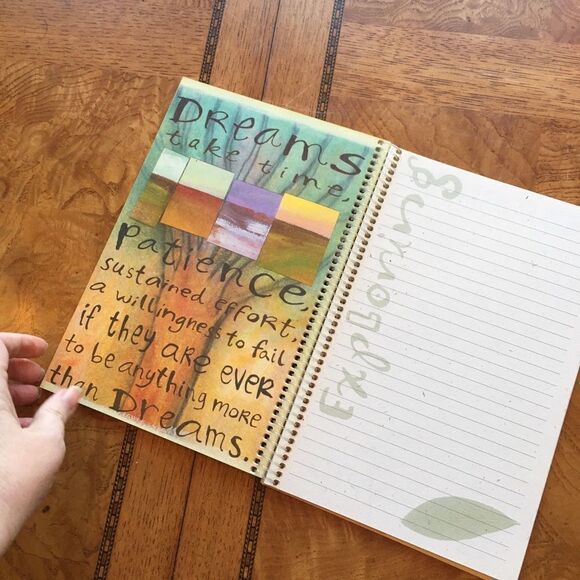 DReams
take time,
patience,
sustained effort,
a willingness to fail
if they are ever
to be anything more
than DReams.
Exploring